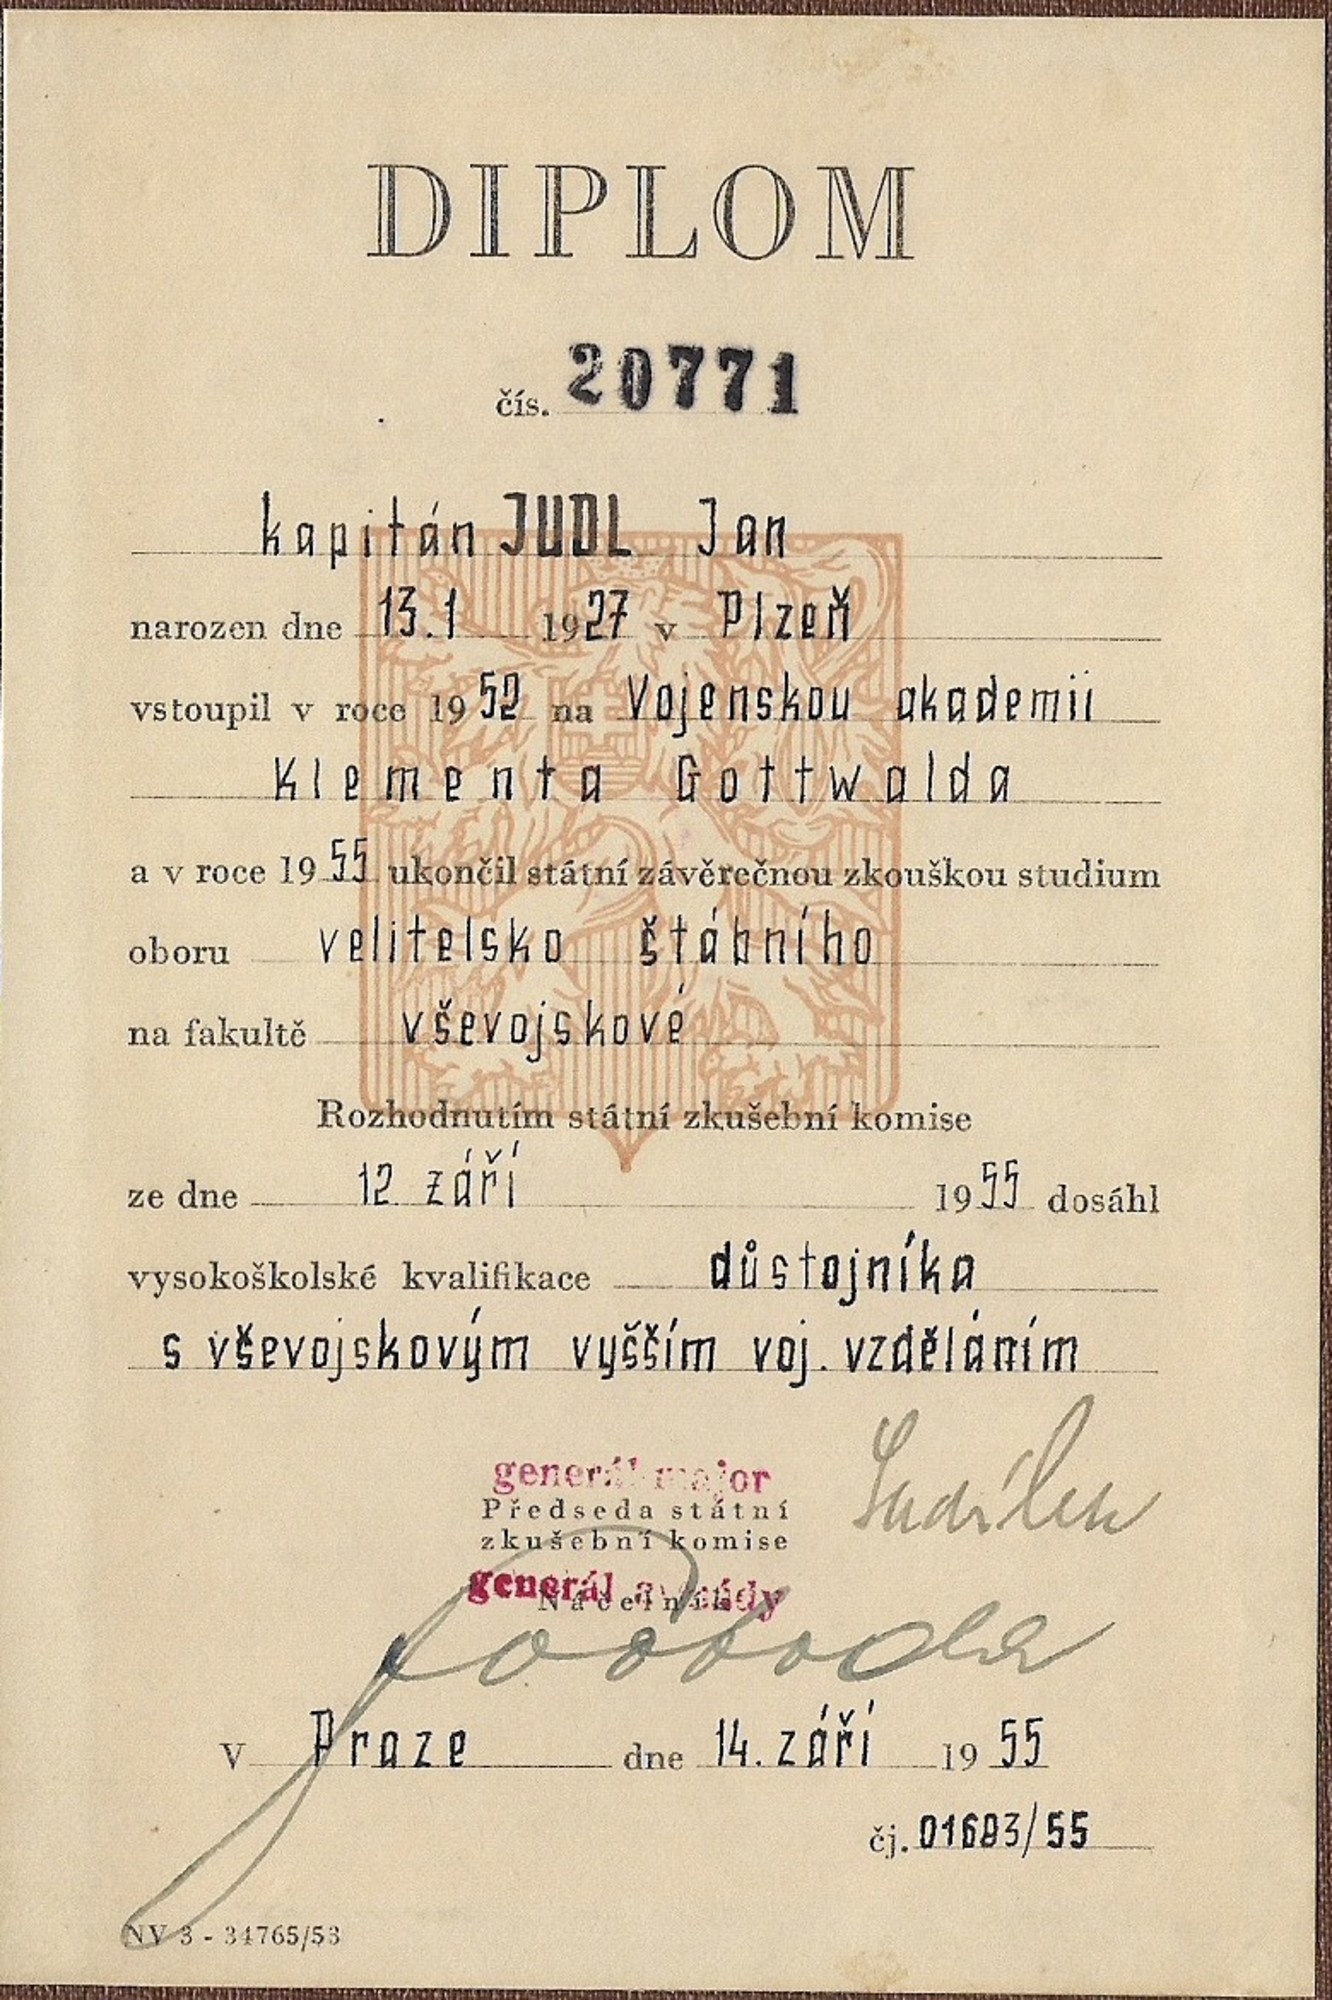 DIPLOM
čís. 20771
kapitán JUDL Jan
narozen dne 13.1 1927 v Plzeň
vstoupil v roce 1952 na Vojenskou akademii
Klementa Gottwalda
a v roce 1955 ukončil státní závěrečnou zkouškou studium
oboru velitelsko štábního
na fakultě vševojskové
Rozhodnutím státní zkušební komise
ze dne 12 září 1955 dosáhl
vysokoškolské kvalifikace důstojníka
s vševojskovým vyšším voj. vzděláním
generál major
Předseda státní
zkušební komise
generál armády
Náčelník
V Praze dne 14. září 1955
čj. 01683/55
NV 3 - 34765/53